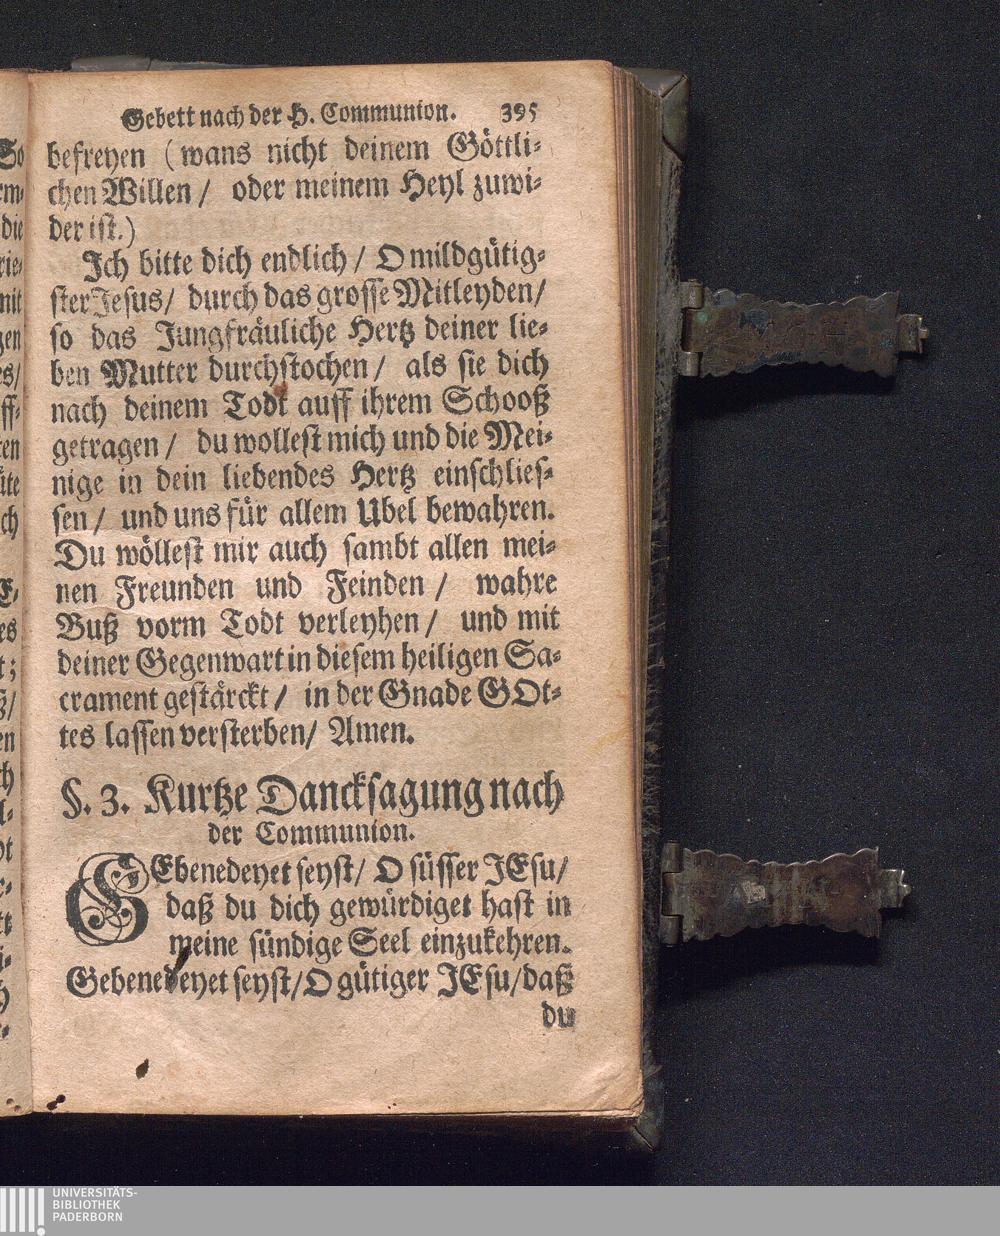 Gebett nach der H. Communion. 395
befreyen (wans nicht deinem Göttli-
chen Willen / oder meinem Heyl zuwi-
der ist.)
Ich bitte dich endlich / O mildgütig-
ster Jesus / durch das grosse Mitleyden /
so das Jungfräuliche Hertz deiner lie-
ben Mutter durchstochen / als sie dich
nach deinem Todt auff ihrem Schooß
getragen / du wollest mich und die Mei-
nige in dein liebendes Hertz einschlies-
sen / und uns für allem Ubel bewahren.
Du wöllest mir auch sambt allen mei-
nen Freunden und Feinden / wahre
Buß vorm Todt verleyhen / und mit
deiner Gegenwart in diesem heiligen Sa-
crament gestärckt / in der Gnade GOt-
tes lassen versterben / Amen.
§. 3. Kurtze Dancksagung nach
der Communion.
GEbenedeyet seyst / O süsser JEsu /
daß du dich gewürdiget hast in
meine sündige Seel einzukehren.
Gebenedeyet seyst / O gütiger JEsu / daß
du
UNIVERSITÄTS-
BIBLIOTHEK
PADERBORN